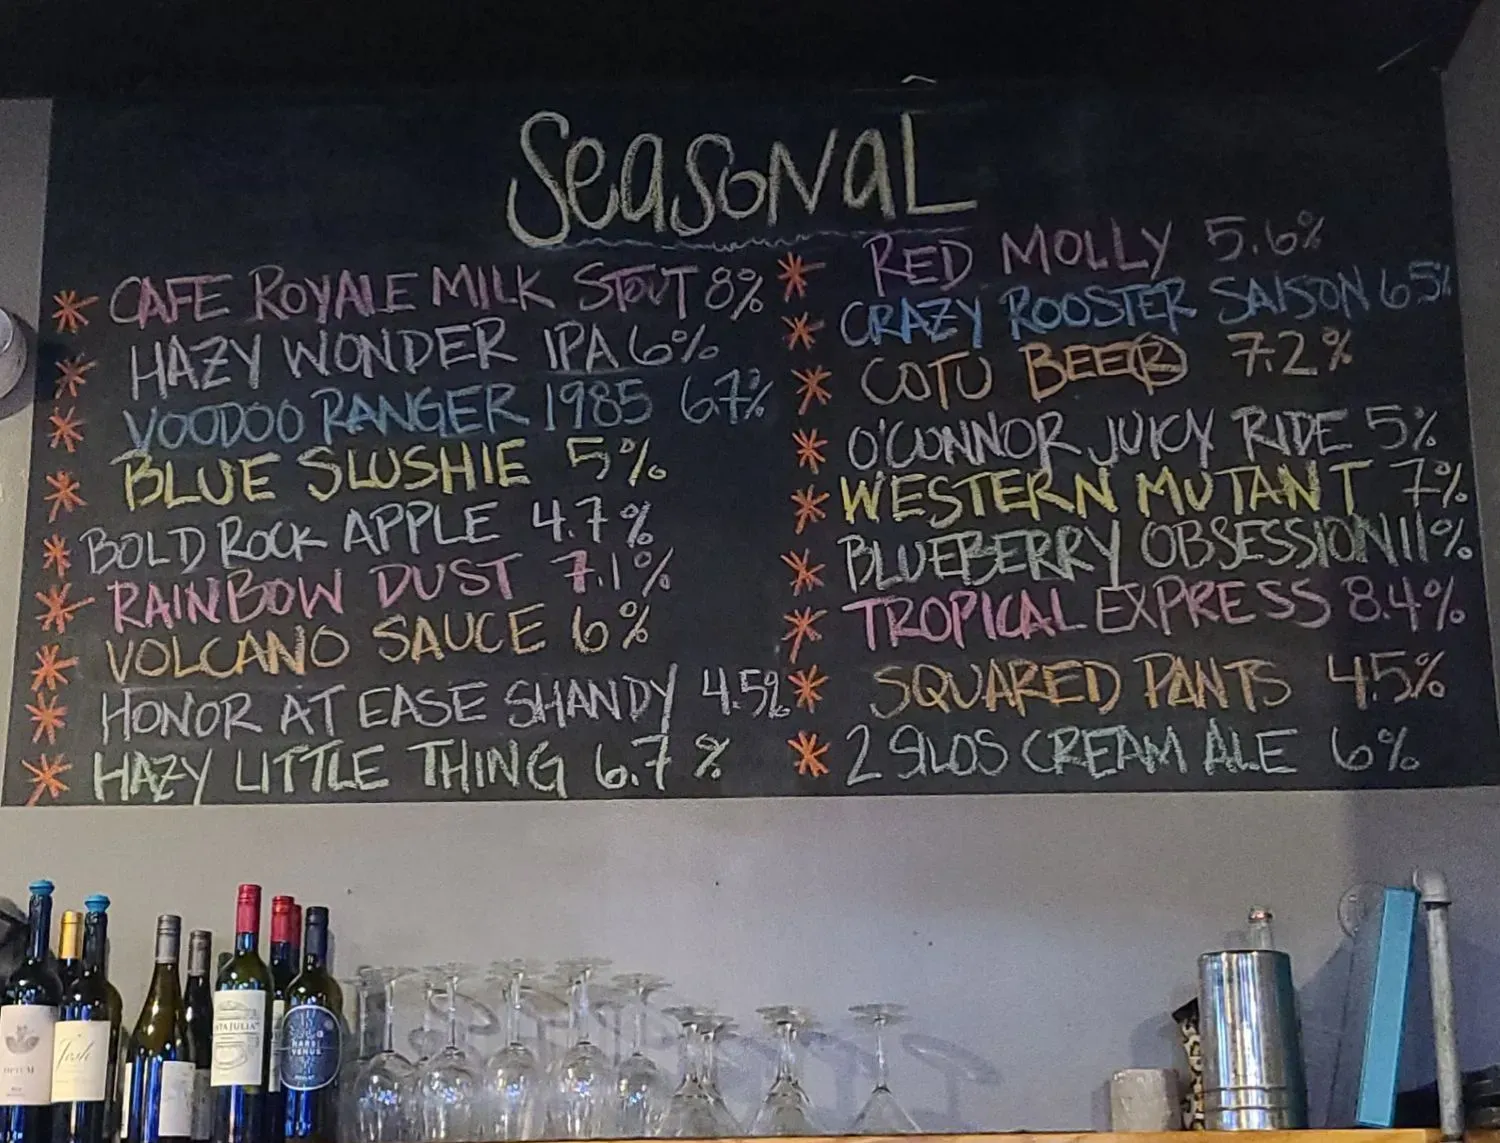 Seasonal
CAFE ROYALE MILK STOUT 8%
HAZY WONDER IPA 6%
VOODOO RANGER 1985 6.7%
BLUE SLUSHIE 5%
BOLD ROCK APPLE 4.7%
RAINBOW DUST 7.1%
VOLCANO SAUCE 6%
HONOR AT EASE SHANDY 4.5%
HAZY LITTLE THING 6.7%
RED MOLLY 5.6%
CRAZY ROOSTER SAISON 65%
COTU BEER 7.2%
O'CONNOR JUICY RIDE 5%
WESTERN MUTANT 7%
BLUEBERRY OBSESSION 11%
TROPICAL EXPRESS 8.4%
SQUARED PANTS 4.5%
2 SILOS CREAM ALE 6%
Josh